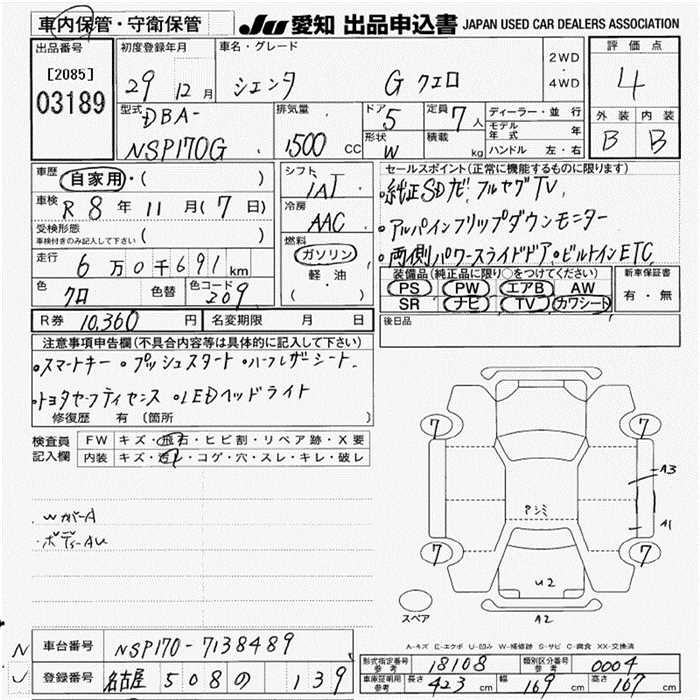 車内保管・守衛保管
JU 愛知 出品申込書 JAPAN USED CAR DEALERS ASSOCIATION
出品番号
[2085]
03189
初度登録年月
29 12月
車名・グレード
シエンタ G クエロ
2WD
・
4WD
評価点
4
外装 内装
B B
型式
DBA-
NSP170G
排気量
1500 CC
ドア
5
形状
W
定員
7人
積載
kg
ディーラー・並行
モデル年式 年
ハンドル 左・右
車歴
自家用・( )
車検 R 8年 11月(7日)
受検形態
車検付きのみ記入して下さい ( )
走行 6万0千691km
色 クロ 色替 色コード 209
シフト
IAT
冷房
AAC
燃料
ガソリン
軽・油
( )
セールスポイント(正常に機能するものに限ります)
・純正SDナビ フルセグTV
・アルパインフリップダウンモニター
・両側パワースライドドア ・ビルトインETC
装備品(純正品に限り○をつけてください)
PS PW エアB AW
SR ナビ TV カワシート
新車保証書
有・無
R券 10,360円 名変期限 月 日
後日品
注意事項申告欄(不具合内容等は具体的に記入して下さい)
・スマートキー ・プッシュスタート ・ハーフレザーシート
・トヨタセーフティセンス ・LEDヘッドライト
修復歴 有(箇所 )
検査員記入欄
FW キズ・飛石・ヒビ割・リペア跡・X要
内装 キズ・汚レ・コゲ・穴・スレ・キレ・破レ
・WガーA
・ボデーAU
7 7
A3
A1
Pシミ
7 7
U2
A2
スペア
A-キズ E-エクボ U-凹み W-補修跡 S-サビ C-腐食 XX-交換済
車台番号 NSP170-7138489
登録番号 名古屋 508 の 139
形式指定番号 参考 18108 類別区分番号 参考 0004
車庫証明用 参考 長さ 423cm 幅 169cm 高さ 167cm